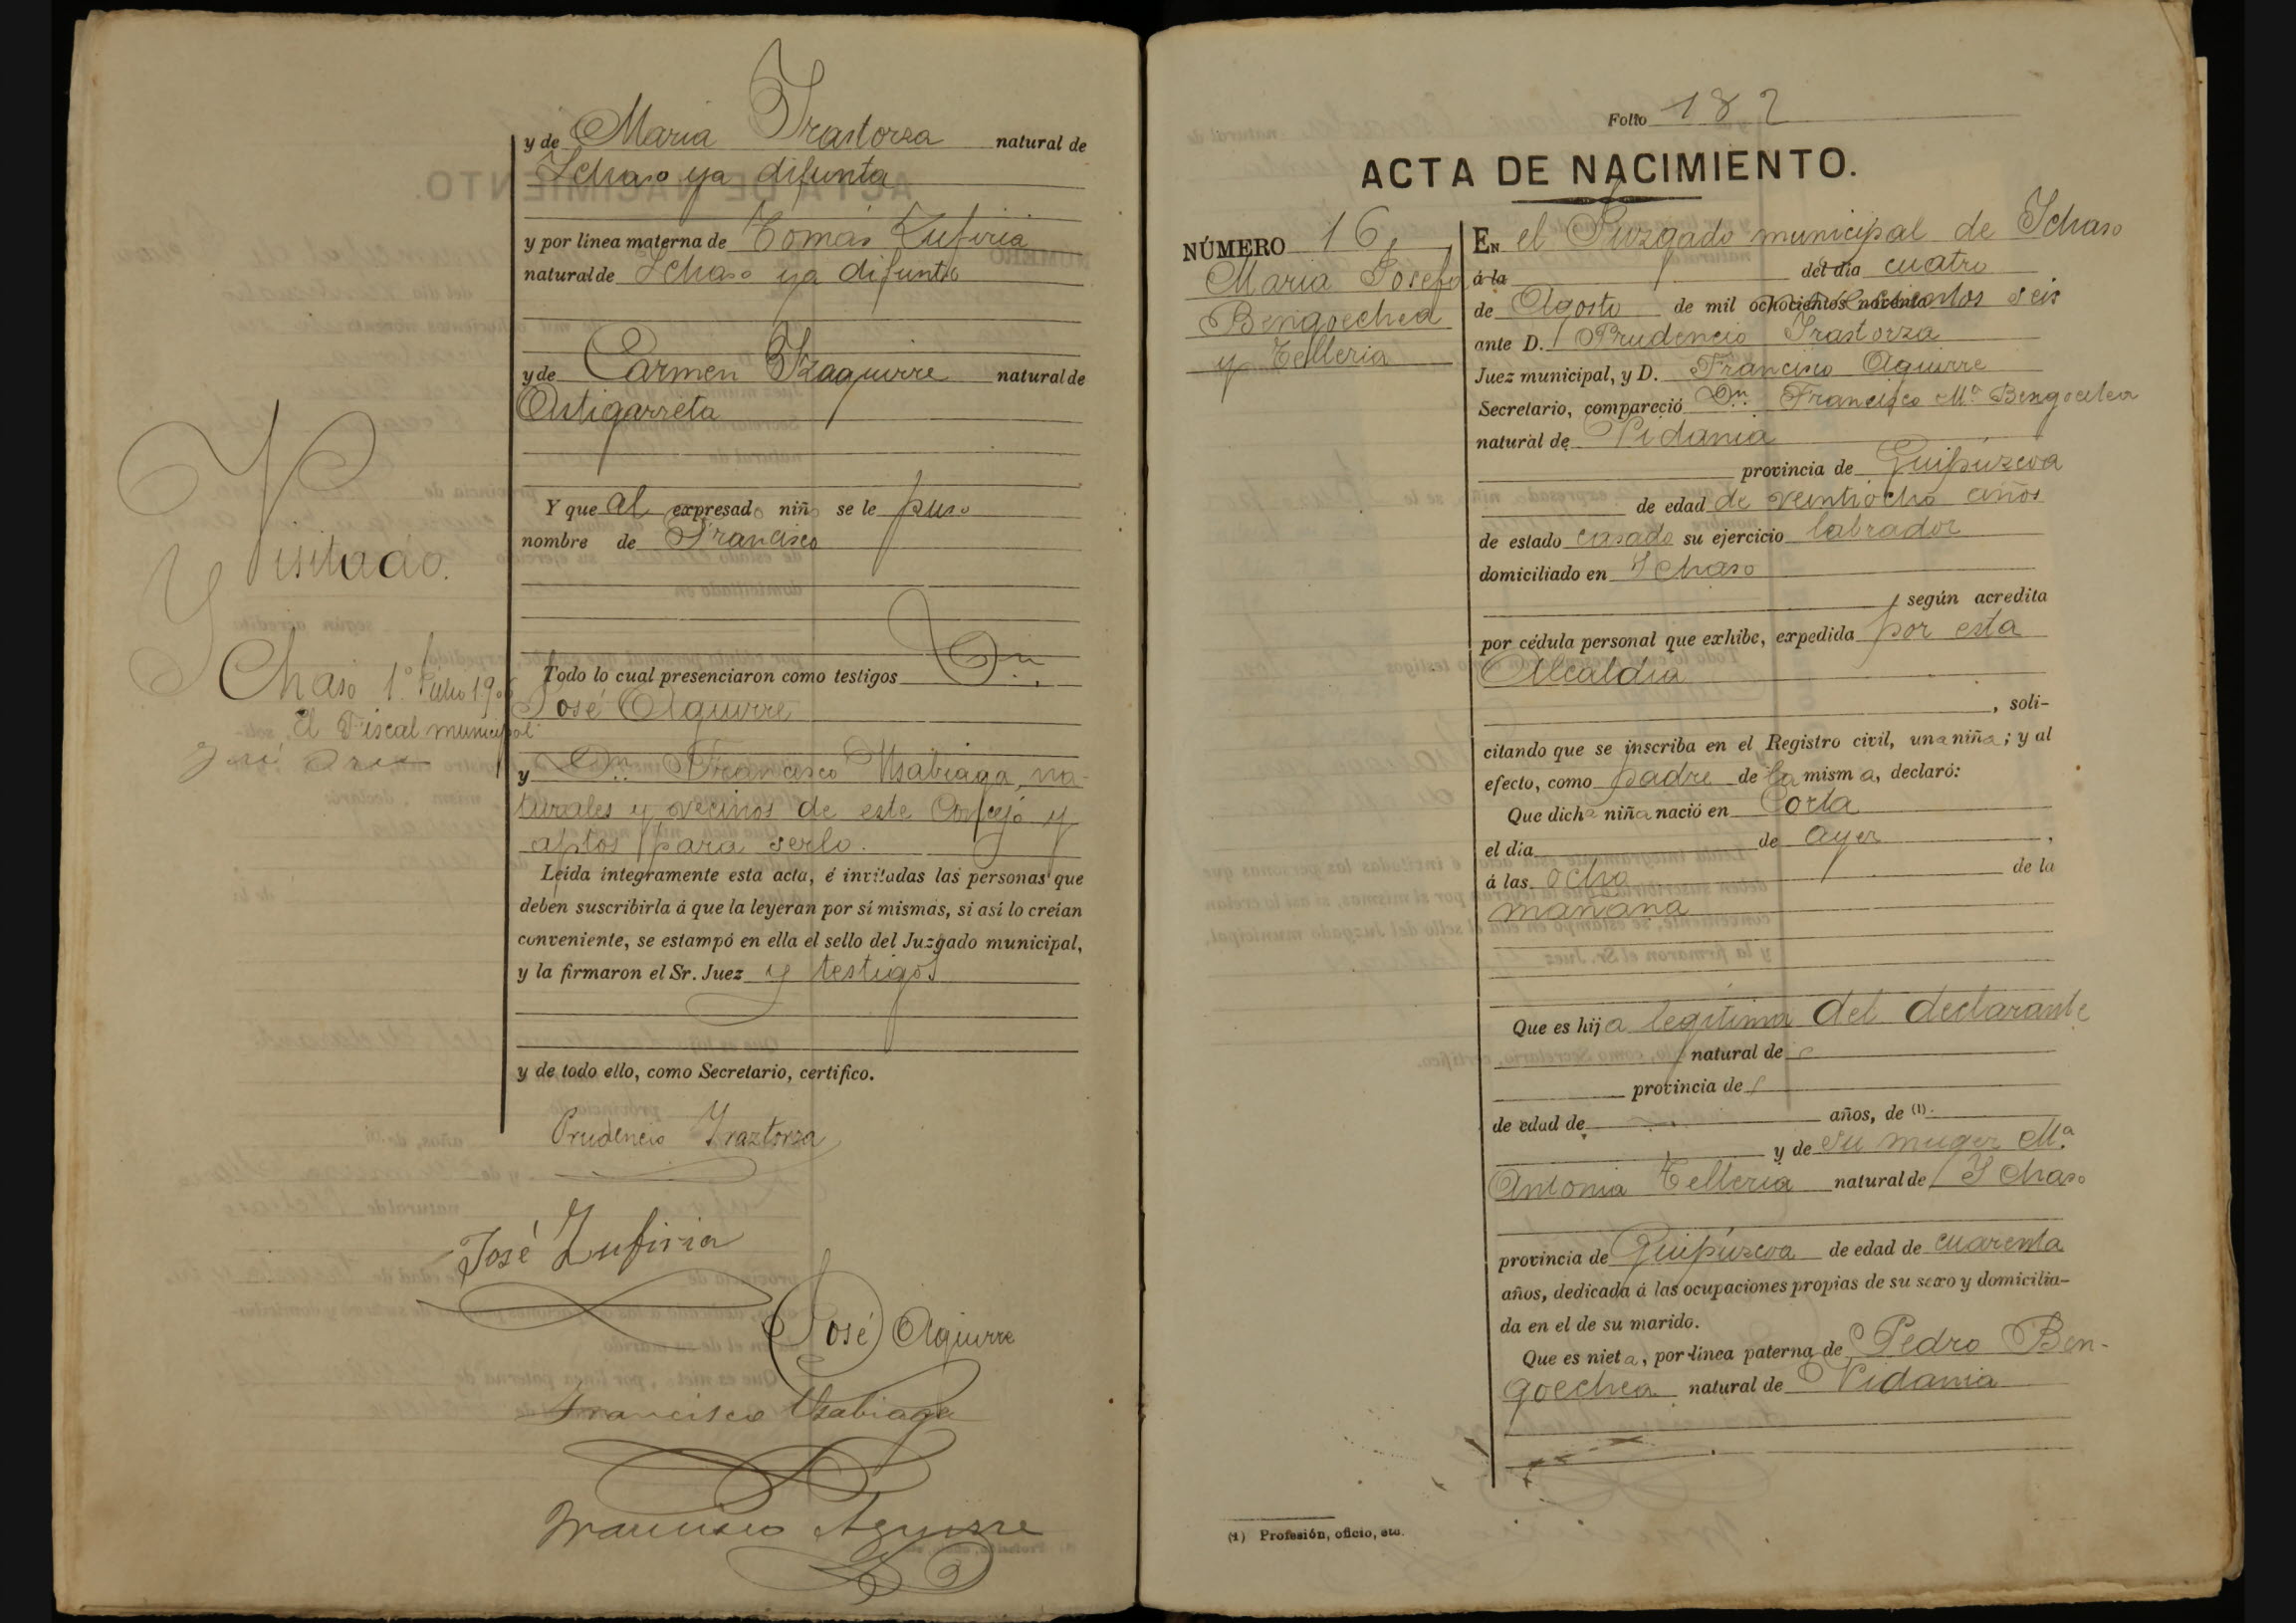 y de Maria Irastorza natural de
Ichaso ya difunta
y por linea materna de Tomás Zufiria
natural de Ichaso ya difunto
y de Carmen Izaguirre natural de
Astigarreta
Y que al expresado niño se le puso
nombre de Francisco
Todo lo cual presenciaron como testigos Dn.
José Aguirre
y Dn. Francisco Usabiaga, na-
turales y vecinos de este Concejo y
aptos para serlo.
Leida íntegramente esta acta, é invitadas las personas que
deben suscribirla á que la leyeran por sí mismas, si así lo creían
conveniente, se estampó en ella el sello del Juzgado municipal,
y la firmaron el Sr. Juez y testigos
y de todo ello, como Secretario, certifico.
Prudencio Iraztorza
José Zufiria
José Aguirre
Francisco Usabiaga
Francisco Aguirre
Visitado.
Ychaso 1º Julio 19
El Fiscal municipal
José
Folio 182
ACTA DE NACIMIENTO.
NÚMERO 16,
Maria Josefa
Bengoechea
y Telleria
EN el Juzgado municipal de Ichaso
á la del dia cuatro
de Agosto de mil ochocientos noventa novecientos seis
ante D. Prudencio Irastorza
Juez municipal, y D. Francisco Aguirre
Secretario, compareció Dn. Francisco Mª Bengoechea
natural de Vidania
provincia de Guipúzcoa
de edad de veintiocho años
de estado casado su ejercicio labrador
domiciliado en Ichaso
, según acredita
por cédula personal que exhibe, expedida por esta
Alcaldia
, soli-
citando que se inscriba en el Registro civil, una niña; y al
efecto, como padre de la misma, declaró:
Que dicha niña nació en Corta
el día de ayer,
á las ocho de la
mañana
Que es hija legítima del declarante
natural de
provincia de
de edad de años, de (1)
y de su muger Mª
Antonia Telleria natural de Ychaso
provincia de Guipúzcoa de edad de cuarenta
años, dedicada á las ocupaciones propias de su sexo y domicilia-
da en el de su marido.
Que es nieta, por línea paterna de Pedro Ben-
goechea natural de Vidania
(1) Profesión, oficio, etc.